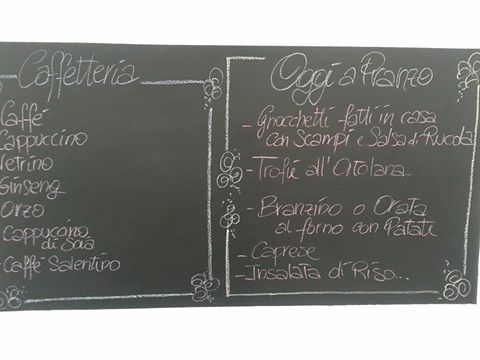 Caffetteria
Caffé
Cappuccino
Vetrino
Ginseng
Orzo
Cappuccino
di Soia
- Caffé Salentino
Oggi a Pranzo
- Gnocchetti fatti in casa
con Scampi e Salsa di Rucola
- Trofie all'Ortolana
- Branzino o Orata
al forno con Patate
- Caprese
- Insalata di Riso...